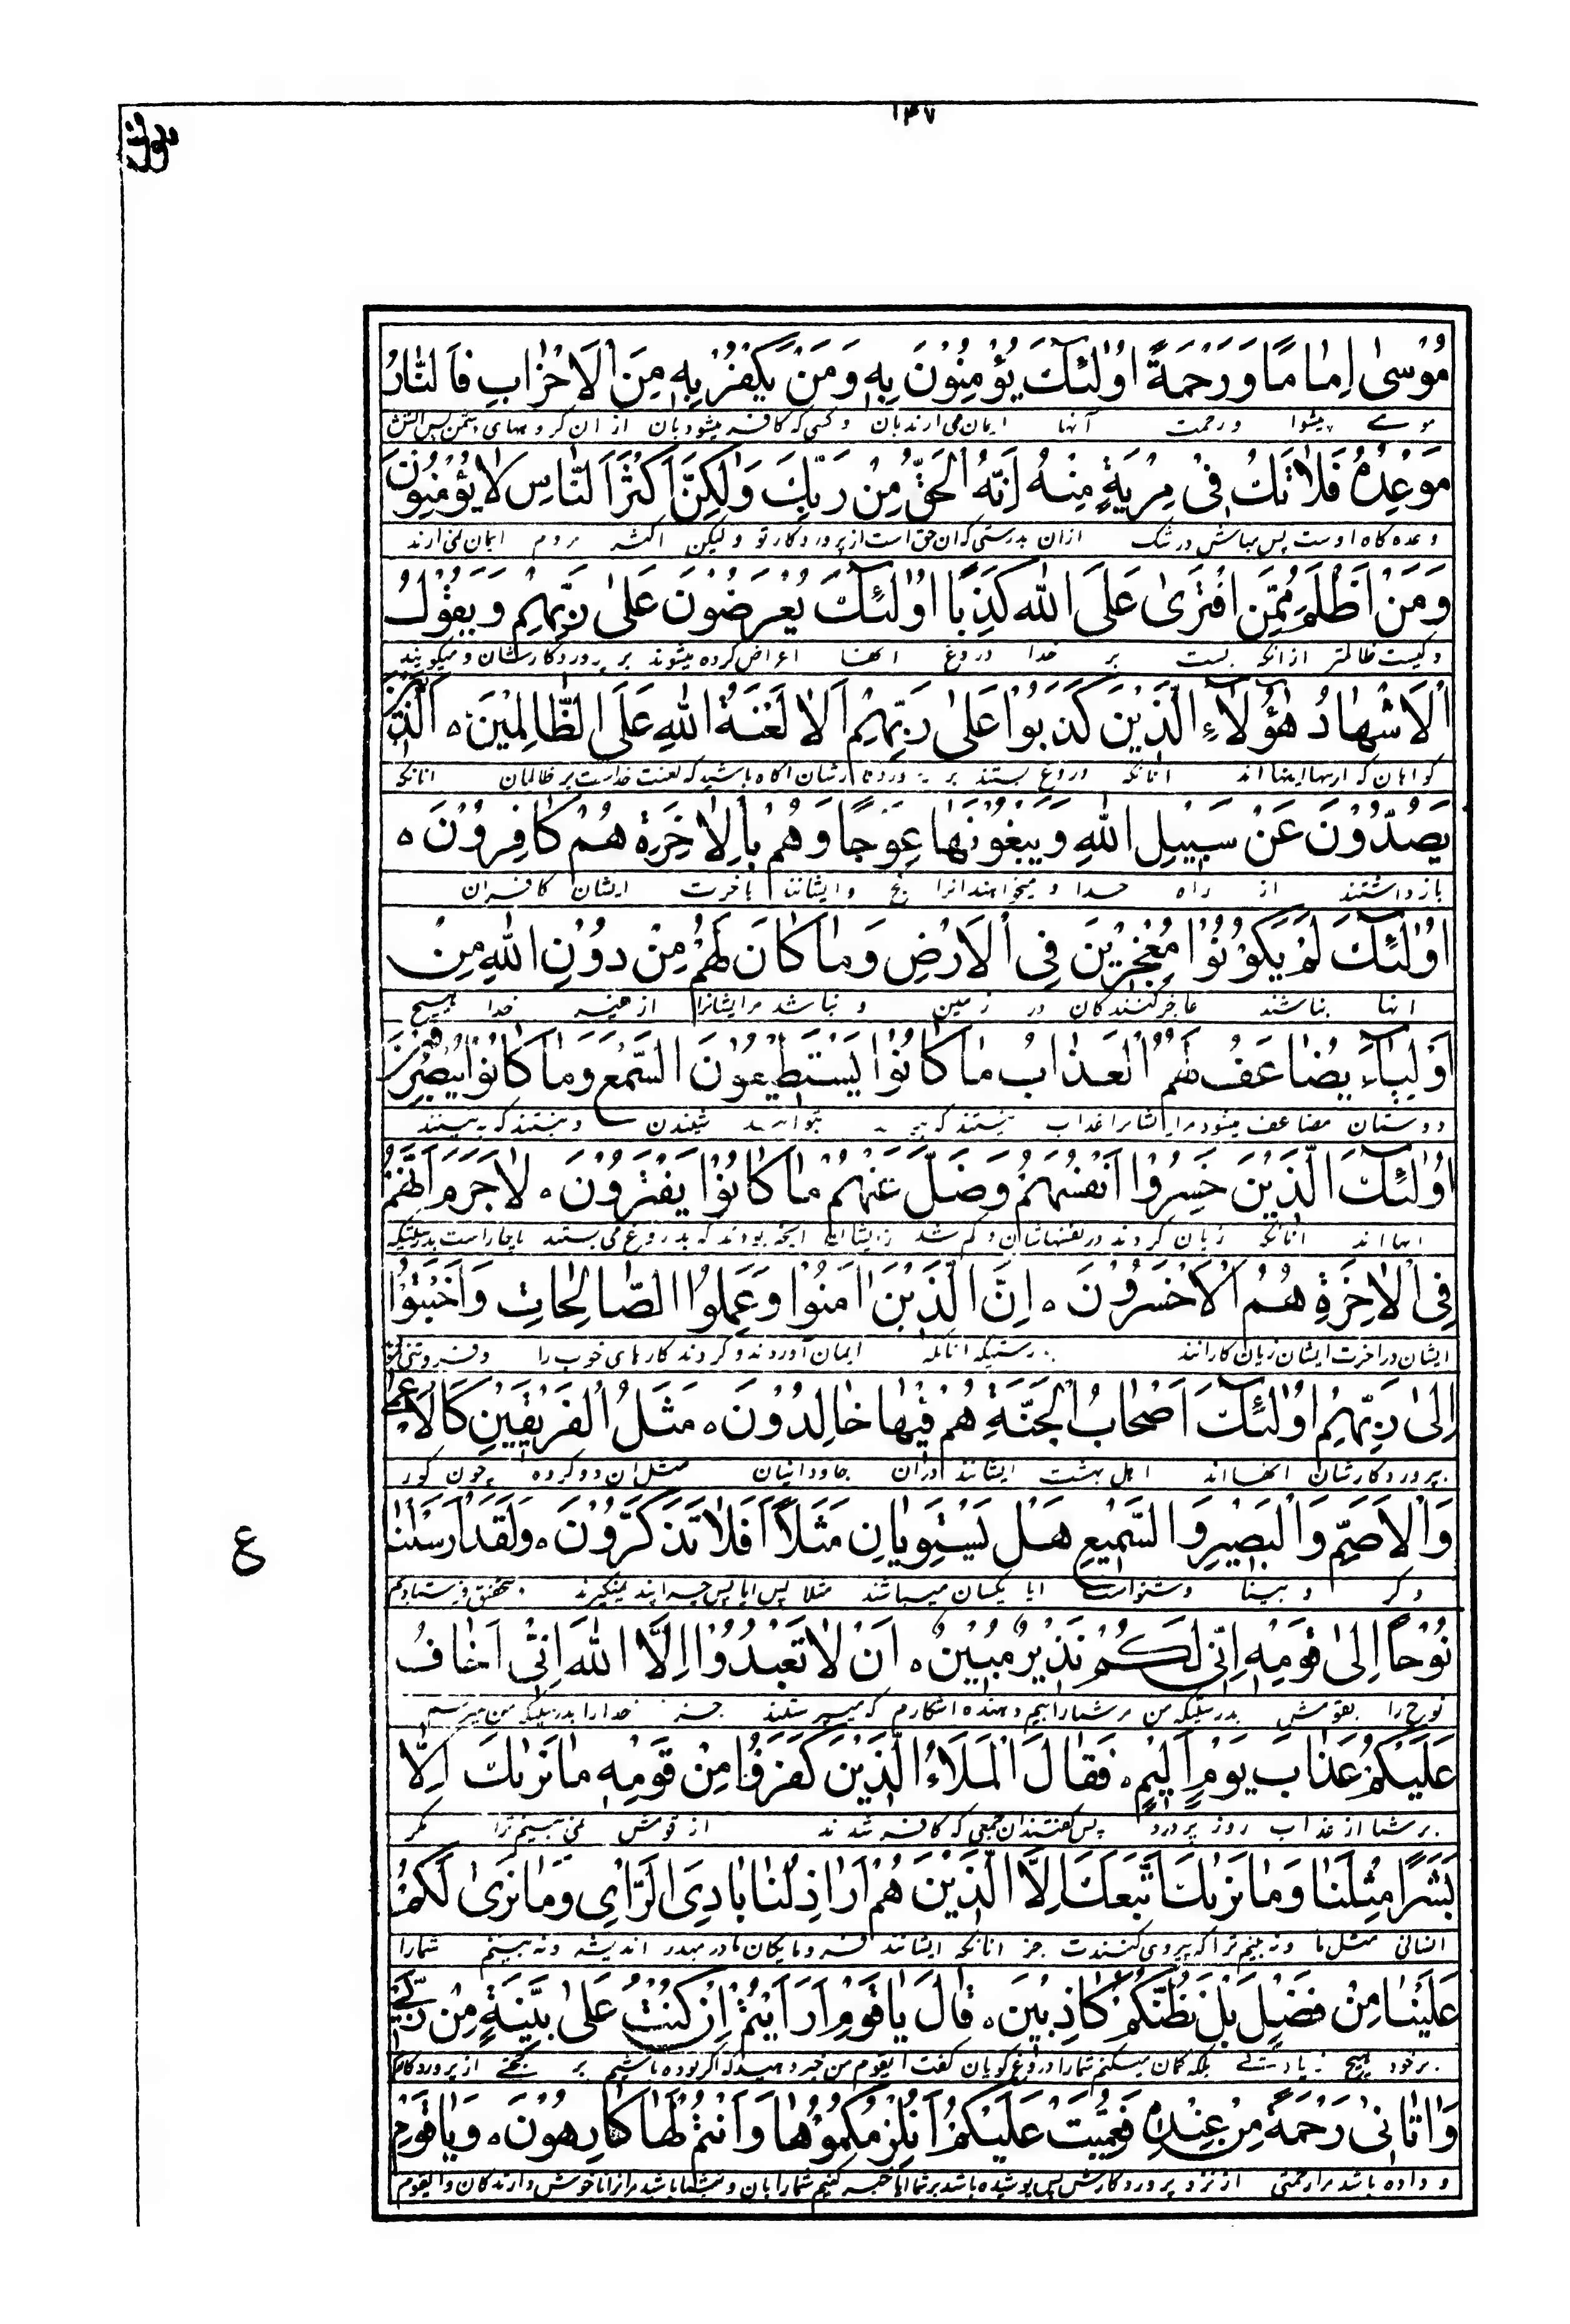 ۱۴۷
مُوْسٰى اِمٰامًا وَ رَحْمَةً اُوْلٰئِكَ يُؤْمِنُوْنَ بِهٖ وَ مَنْ يَكْفُرْ بِهٖ مِنَ الْاَحْزٰابِ فَالنّٰارُ
موسے پیشوا و رحمت آنها ایمان می ارند بان و کسی که کافر میشود بان از ان گروههای پس اتش
مَوْعِدُهُ فَلٰا تَكُ فِىْ مِرْيَةٍ مِنْهُ اِنَّهُ الْحَقُّ مِنْ رَبِّكَ وَلٰكِنَّ اَكْثَرَ النّٰاسِ لٰا يُؤْمِنُوْنَ
وعده کاه اوست پس مباش در شک ازان بدرستی که ان حق است از پروردکار تو و لیکن اکثر مردم ایمان نمی ارند
وَ مَنْ اَظْلَمُ مِمَّنِ افْتَرٰى عَلَى اللّٰهِ كَذِبًا اُوْلٰئِكَ يُعْرَضُوْنَ عَلٰى رَبِّهِمْ وَ يَقُوْلُ
و کیست ظالمتر ازانکه بست بر خدا دروغ انها اعراض کرده میشوند بر پروردکارشان و میکویند
الْاَشْهٰادُ هٰؤُلٰاءِ الَّذِيْنَ كَذَبُوْا عَلٰى رَبِّهِمْ اَلٰا لَعْنَةُ اللّٰهِ عَلَى الظّٰالِمِيْنَ ه الَّذِيْنَ
کواهان که اینها اند انانکه دروغ بستند بر پروردکارشان اکاه باشید که لعنت خداست بر ظالمان انانکه
يَصُدُّوْنَ عَنْ سَبِيْلِ اللّٰهِ وَ يَبْغُوْنَهٰا عِوَجًا وَ هُمْ بِالْاٰخِرَةِ هُمْ كٰافِرُوْنَ ه
بازداشتند از راه خدا و میخواهند انرا کج و ایشانند باخرت ایشان کافران
اُوْلٰئِكَ لَمْ يَكُوْنُوْا مُعْجِزِيْنَ فِى الْاَرْضِ وَ مٰا كٰانَ لَهُمْ مِنْ دُوْنِ اللّٰهِ مِنْ
انها نباشند عاجزکنندکان در زمین و نباشد مرایشانرا از غیر خدا هیچ
اَوْلِيٰاءَ يُضٰاعَفُ لَهُمُ الْعَذٰابُ مٰا كٰانُوْا يَسْتَطِيْعُوْنَ السَّمْعَ وَ مٰا كٰانُوْا يُبْصِرُوْنَ
دوستان مضاعف میشود مرایشانرا عذاب نیستند که شنیدن و نیستند که به بینند
اُوْلٰئِكَ الَّذِيْنَ خَسِرُوْا اَنْفُسَهُمْ وَ ضَلَّ عَنْهُمْ مٰا كٰانُوْا يَفْتَرُوْنَ ه لٰا جَرَمَ اَنَّهُمْ
انها اند انانکه زیان کردند در نفسهاشان و کم شد از ایشان انچه بودند که بدروغ می بستند ناچار است بدرستیکه
فِى الْاٰخِرَةِ هُمُ الْاَخْسَرُوْنَ ه اِنَّ الَّذِيْنَ اٰمَنُوْا وَ عَمِلُوا الصّٰالِحٰاتِ وَ اَخْبَتُوْا
ایشان در اخرت ایشان زیان کارانند بدرستیکه انانکه ایمان آوردند و کردند کارهای خوب را و فروتنی
اِلٰى رَبِّهِمْ اُوْلٰئِكَ اَصْحٰابُ الْجَنَّةِ هُمْ فِيْهٰا خٰالِدُوْنَ ه مَثَلُ الْفَرِيْقَيْنِ كَالْاَعْمٰى
بپروردکارشان انها اند اهل بهشت ایشانند دران جاودانیان مثل ان دو کروه چون کور
وَ الْاَصَمِّ وَ الْبَصِيْرِ وَ السَّمِيْعِ هَلْ يَسْتَوِيٰانِ مَثَلًا اَفَلٰا تَذَكَّرُوْنَ ه وَ لَقَدْ اَرْسَلْنٰا
و کر و بینا و شنواست ایا یکسان میباشند مثلا پس ایا پس چرا پند نمیکیرند بتحقیق فرستادیم
ع
نُوْحًا اِلٰى قَوْمِهٖ اِنِّى لَكُمْ نَذِيْرٌ مُبِيْنٌ ه اَنْ لٰا تَعْبُدُوْا اِلَّا اللّٰهَ اِنِّى اَخٰافُ
نوح را بقومش بدرستیکه من مر شما را بیم دهنده اشکارم که میپرستند جز خدا را بدرستیکه من میترسم
عَلَيْكُمْ عَذٰابَ يَوْمٍ اَلِيْمٍ ه فَقٰالَ الْمَلَاُ الَّذِيْنَ كَفَرُوْا مِنْ قَوْمِهٖ مٰا نَرٰيكَ اِلّٰا
بر شما از عذاب روز پردرد پس کفتند ان جمعی که کافر شدند از قومش نمی بینیم ترا مکر
بَشَرًا مِثْلَنٰا وَ مٰا نَرٰيكَ اتَّبَعَكَ اِلَّا الَّذِيْنَ هُمْ اَرٰاذِلُنٰا بٰادِىَ الرَّاْىِ وَ مٰا نَرٰى لَكُمْ
انسانی مثل ما و نه بینیم ترا که پیروی کنندت جز انانکه ایشانند فرومایکان ما در اندیشه و نه بینیم شما را
عَلَيْنٰا مِنْ فَضْلٍ بَلْ نَظُنُّكُمْ كٰاذِبِيْنَ ه قٰالَ يٰا قَوْمِ اَرَاَيْتُمْ اِنْ كُنْتُ عَلٰى بَيِّنَةٍ مِنْ رَبِّىْ
بر خود هیچ زیادتی بلکه کمان میکنیم شما را دروغ کویان کفت ایقوم من خبر دهید که اکر بوده باشم بر حجتی از پروردکارم
وَ اٰتٰانِىْ رَحْمَةً مِنْ عِنْدِهٖ فَعُمِّيَتْ عَلَيْكُمْ اَنُلْزِمُكُمُوْهٰا وَ اَنْتُمْ لَهٰا كٰارِهُوْنَ ه وَ يٰا قَوْمِ
و داده باشد مرا رحمتی از نزد پروردکارش پس پوشیده باشد بر شما ایا جبر کنیم شما را بان و شما باشید مر انرا ناخوش دارندکان و ایقوم